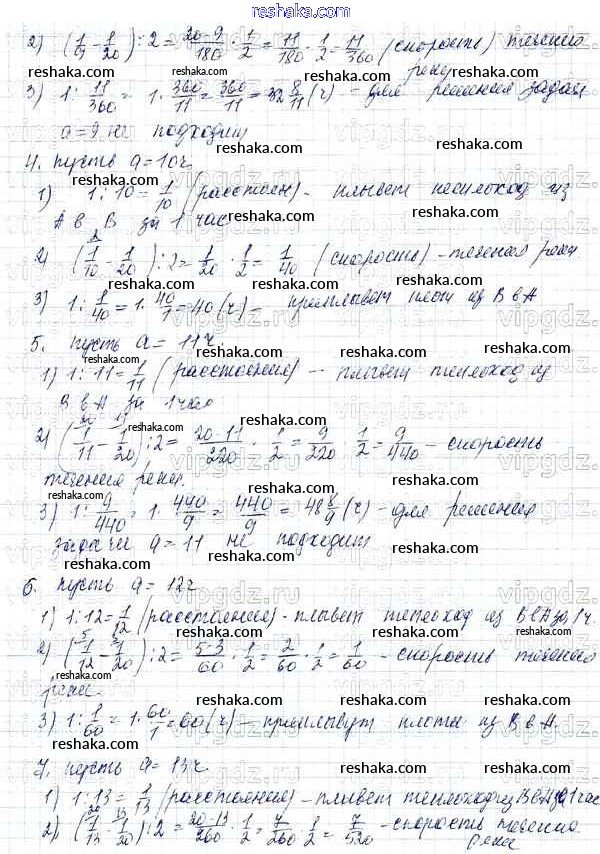 reshaka.com
2) (1/9 - 1/20) : 2 = (20-9)/180 · 1/2 = 11/180 · 1/2 = 11/360 (скорость) течения
реки
3) 1 : 11/360 = 1 · 360/11 = 360/11 = 32 8/11 (ч) – для решения задачи
a = 9 не подходит
4. пусть a = 10ч.
1) 1 : 10 = 1/10 (расстоян) – плывет теплоход из
А в В за 1 час
2) (1/10 - 1/20) : 2 = 1/20 · 1/2 = 1/40 (скорость) – течения реки
3) 1 : 1/40 = 1 · 40/1 = 40 (ч) – приплывет плот из В в А
5. пусть a = 11 ч.
1) 1 : 11 = 1/11 (расстояния) – плывет теплоход из
В в А за 1 час
2) (1/11 - 1/20) : 2 = (20-11)/220 · 1/2 = 9/220 · 1/2 = 9/440 – скорость
течения реки.
3) 1 : 9/440 = 1 · 440/9 = 440/9 = 48 8/9 (ч) – для решения
задачи a = 11 не подходит
6. пусть a = 12ч
1) 1 : 12 = 1/12 (расстояние) – плывет теплоход из В в А за 1 ч.
2) (1/12 - 1/20) : 2 = (5-3)/60 · 1/2 = 2/60 · 1/2 = 1/60 – скорость течения
реки.
3) 1 : 1/60 = 1 · 60/1 = 60 (ч) – приплывут плоты из В в А.
7. пусть a = 13ч.
1) 1 : 13 = 1/13 (расстояния) – плывет теплоход из В в А за 1 час
2) (1/13 - 1/20) : 2 = (20-13)/260 · 1/2 = 7/260 · 1/2 = 7/520 – скорость течения
реки